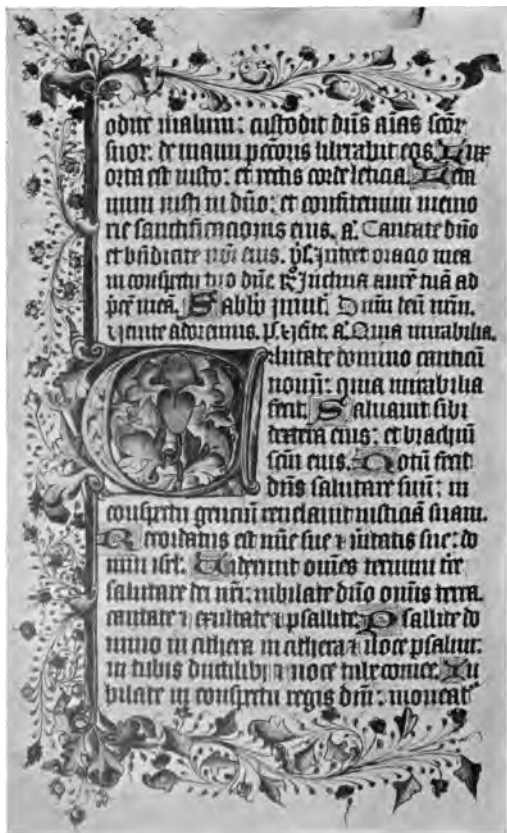 odite malum: custodit dñs aĩas scõr
suor: de manu pctoris liberabit eos. Lux
orta est iusto: et rectis corde leticia. Leta
mini iusti in dño: et confitemini memo
rie sanctificacionis eius. a. Cantate dño
et bñdicite nõi eius. ps. Intret oracio mea
in conspectu tuo dñe. R. Inclina aurẽ tuã ad
pcẽ meã. Sabbõ Dñm
venite adoremus. ps. Venite. a. Quia mirabilia.
Cantate domino canticũ
novũ: quia mirabilia
fecit. Saluavit sibi
dextera eius: et brachiũ
scm eius. Notũ fecit
dñs salutare suũ: in
conspectu genciũ revelavit iusticiã suam.
Recordatus est mie sue ⁊ ũitatis sue: do
mui isrl. Viderunt omẽs termini tre
salutare dei nri: iubilate dño omnis terra.
cantate ⁊ exultate ⁊ psallite. Psallite do
mino in cithera in cithera ⁊ voce psalmi:
in tubis ductilibȝ ⁊ voce tube cornee. Iu
bilate in conspectu regis dñi: moveat